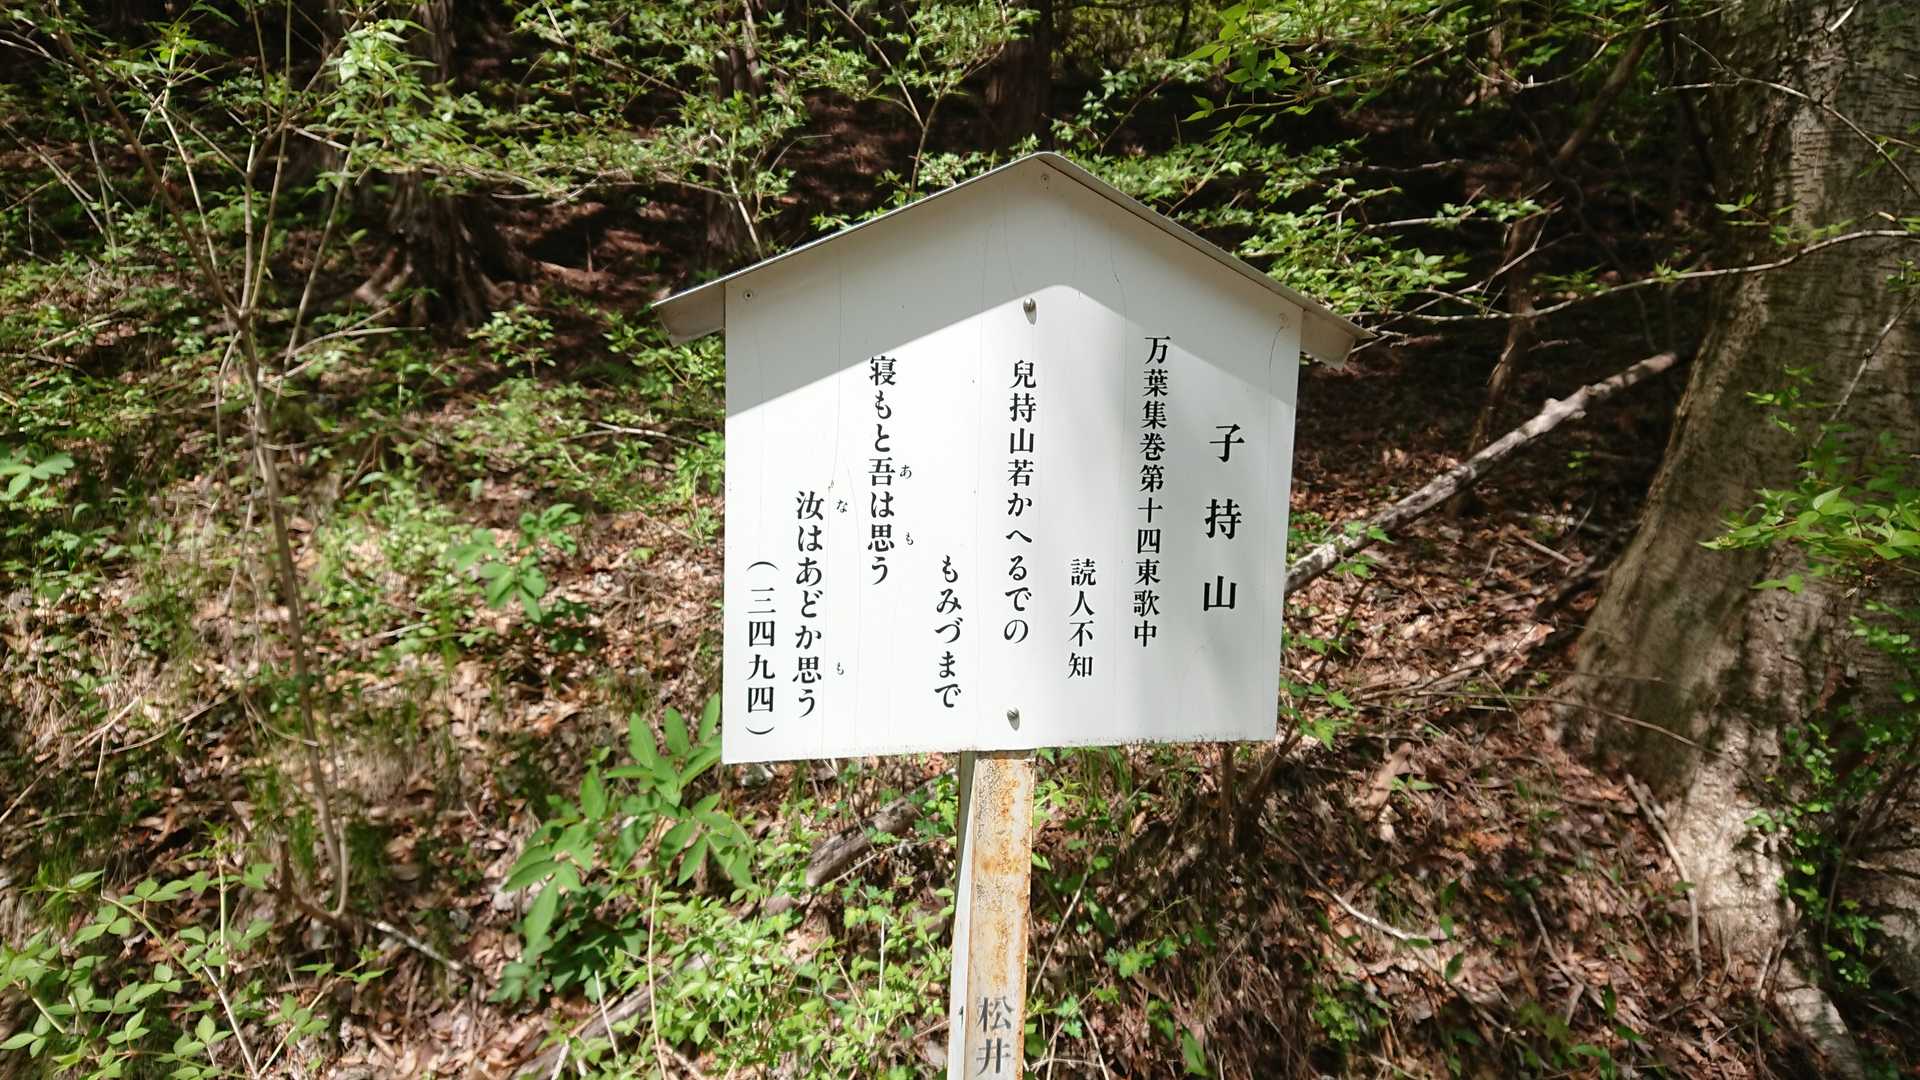 子持山
万葉集巻第十四東歌中
読人不知
兒持山若かへるでの
もみづまで
寝もと吾は思う
あ も
汝はあどか思う
な も
（三四九四）
松井